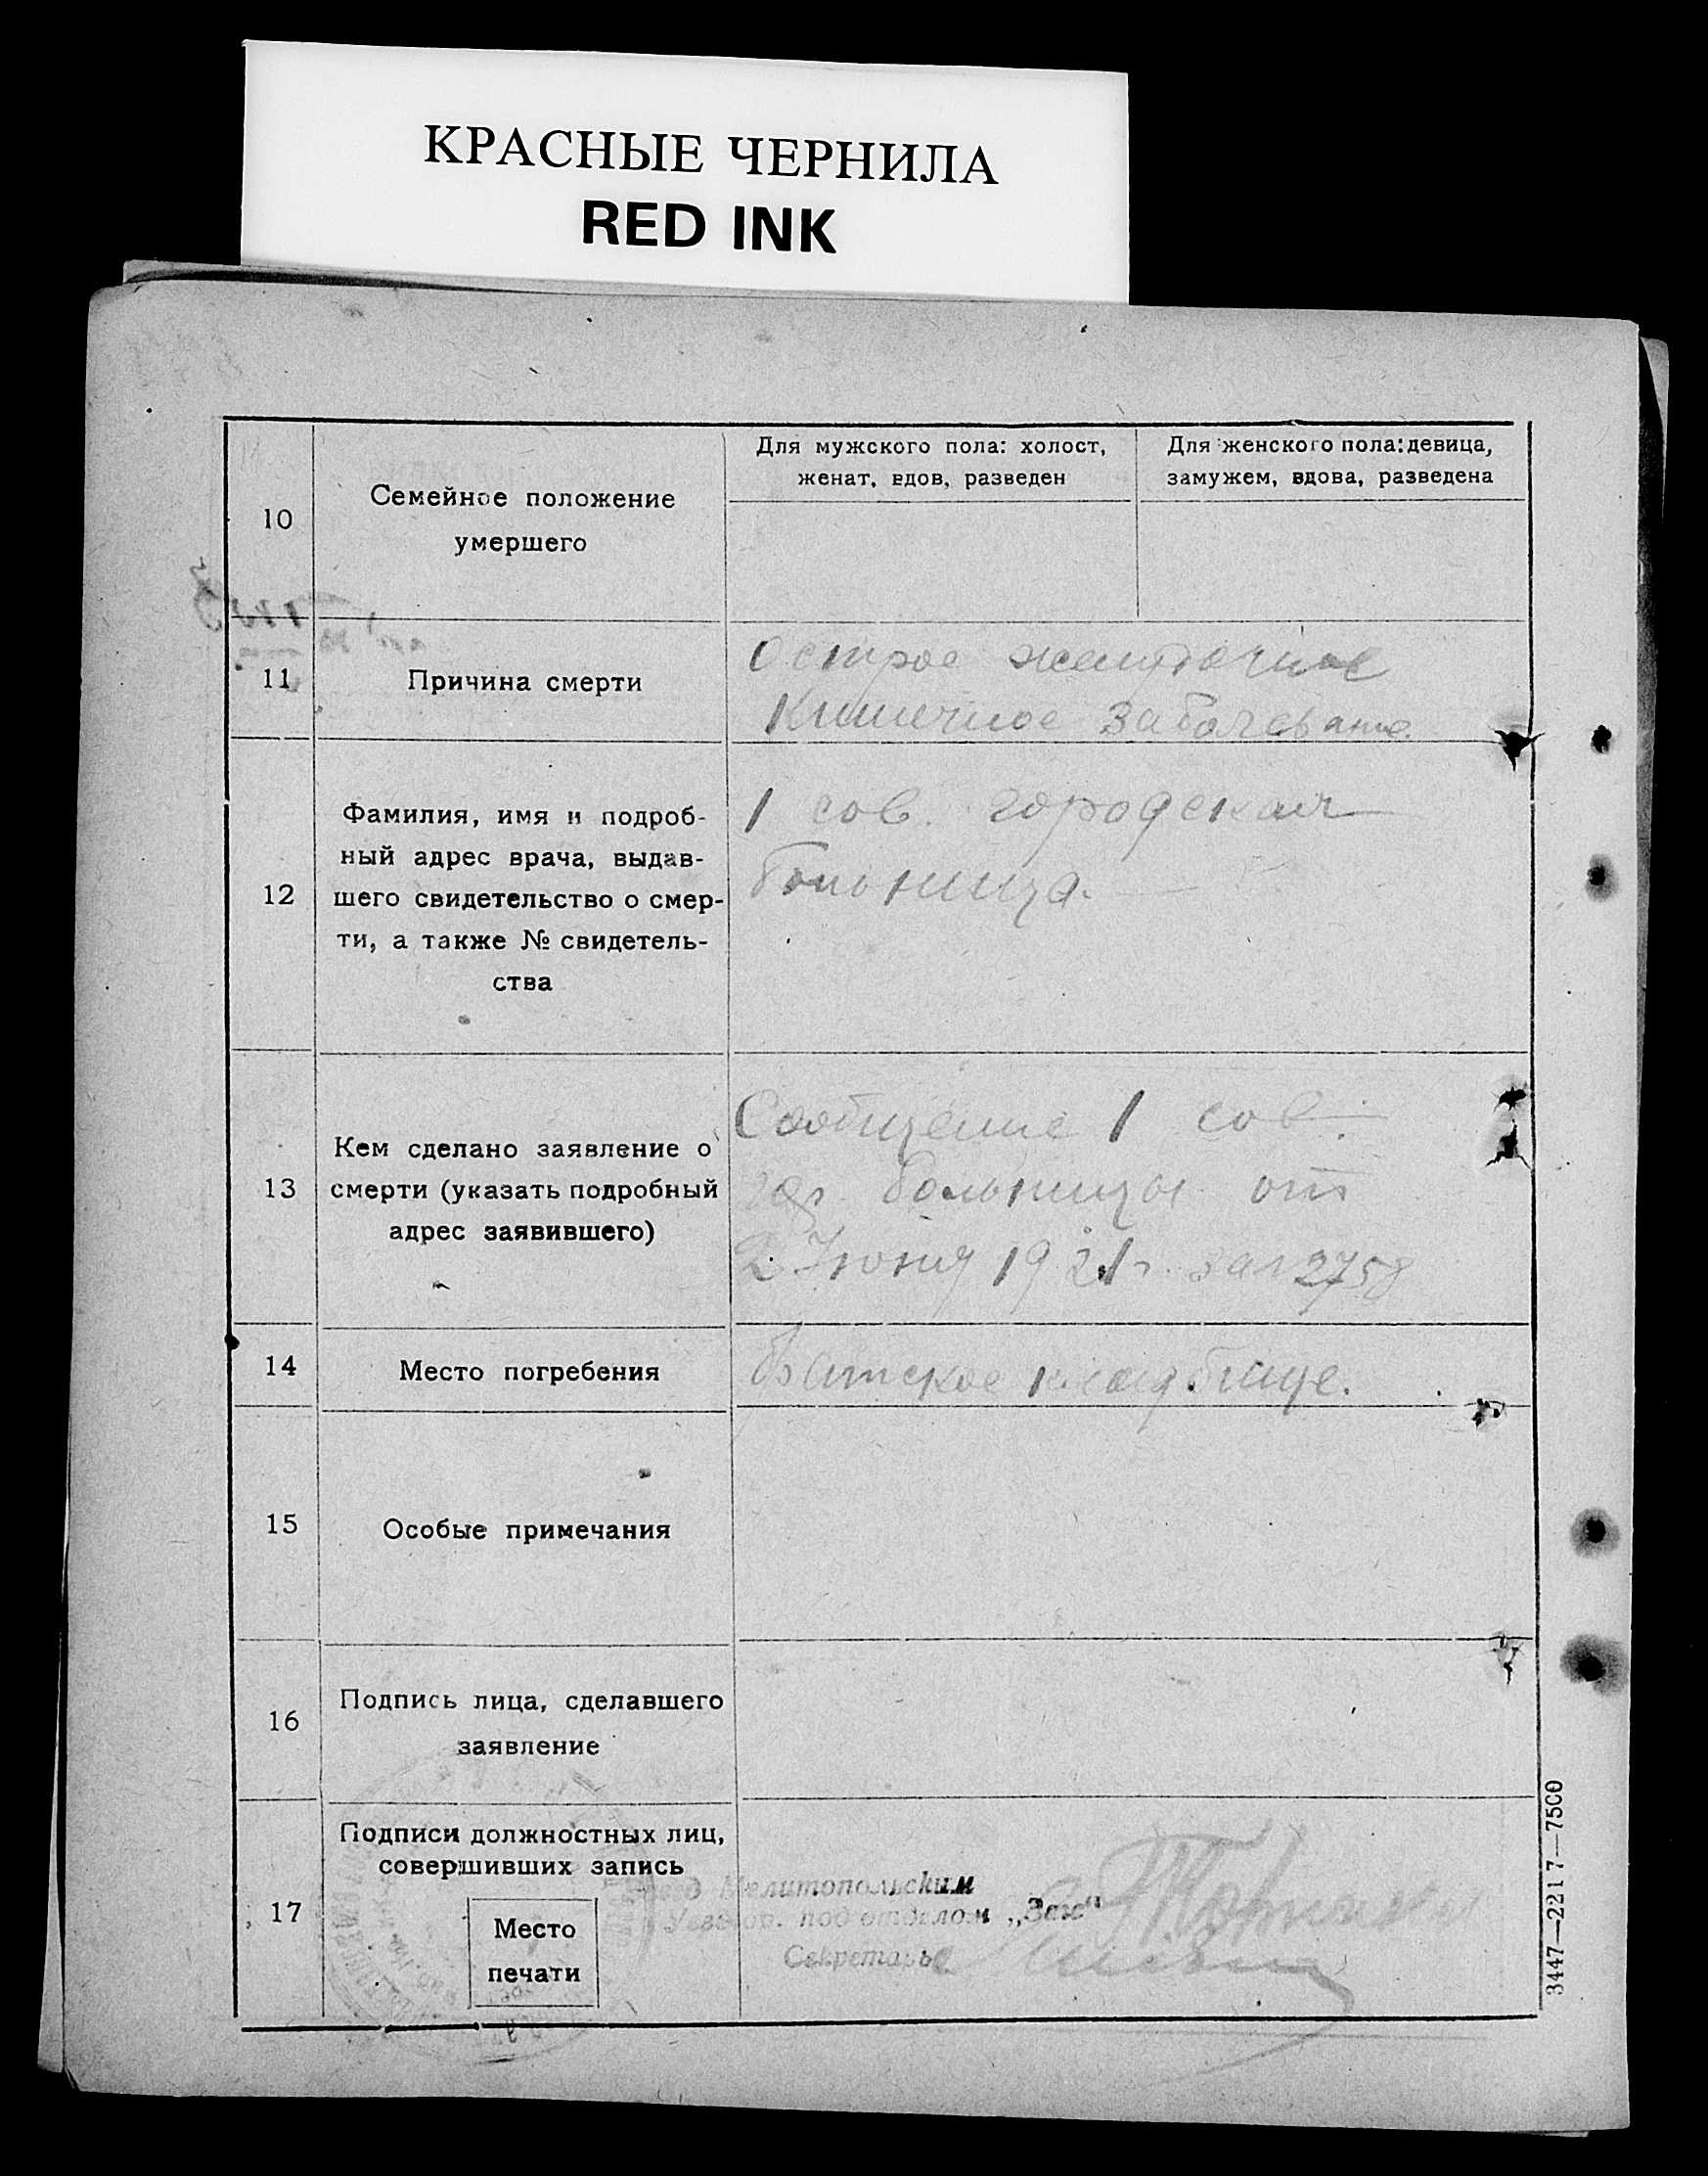 КРАСНЫЕ ЧЕРНИЛА
RED INK
10
Семейное положение
умершего
Для мужского пола: холост,
женат, вдов, разведен
Для женского пола: девица,
замужем, вдова, разведена
11
Причина смерти
Острое желудочное
Кишечное Заболевание.
12
Фамилия, имя и подроб-
ный адрес врача, выдав-
шего свидетельство о смер-
ти, а также № свидетель-
ства
1 сов. городская
больница.
13
Кем сделано заявление о
смерти (указать подробный
адрес заявившего)
Сообщение 1 сов.
гор. больницы от
2 Июня 1921 г. за № 2758
14
Место погребения
Братское кладбище.
15
Особые примечания
16
Подпись лица, сделавшего
заявление
17
Подписи должностных лиц,
совершивших запись
Место
печати
Мелитопольским
под отделом „Загс“
Секретарь
3447—2217—7500